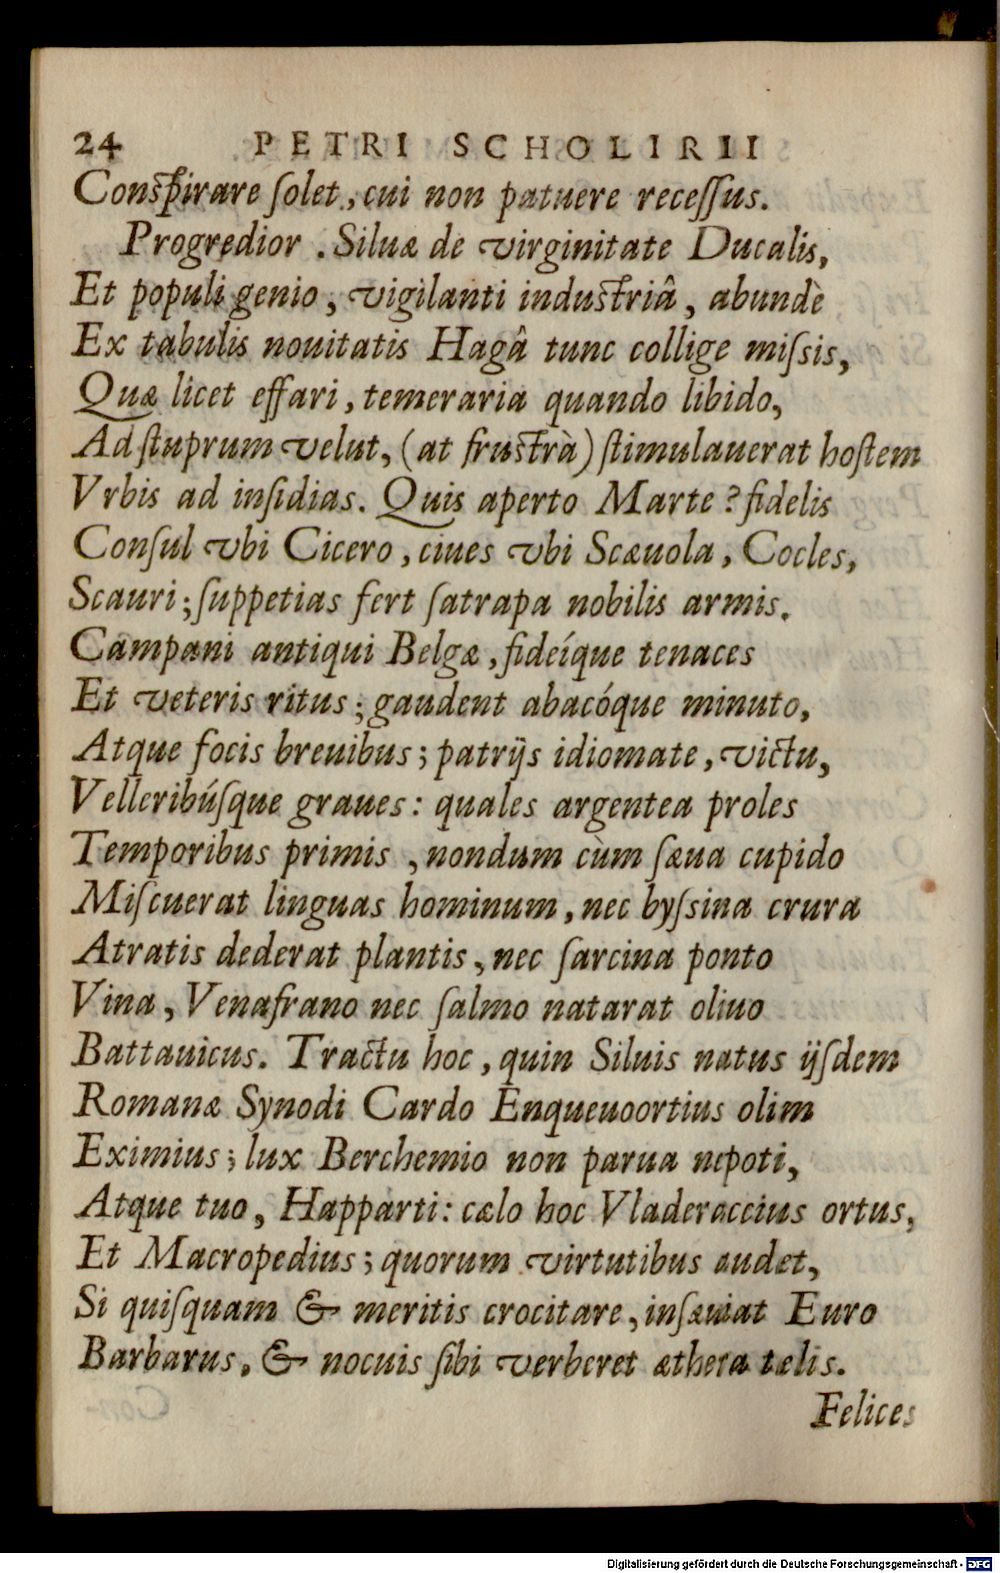 24 PETRI SCHOLIRII
Conspirare ſolet, cui non patuere receſſus.
Progredior . Siluæ de virginitate Ducalis,
Et populi genio, vigilanti industriâ, abundè
Ex tabulis nouitatis Hagâ tunc collige miſsis,
Quæ licet effari, temeraria quando libido,
Ad ſtuprum velut, (at frustrà) ſtimulauerat hoſtem
Vrbis ad inſidias. Quis aperto Marte? fidelis
Conſul vbi Cicero, ciues vbi Scæuola, Cocles,
Scauri; ſuppetias fert ſatrapa nobilis armis.
Campani antiqui Belgæ, fideíque tenaces
Et veteris ritus; gaudent abacóque minuto,
Atque focis breuibus; patrijs idiomate, victu,
Velleribúſque graues: quales argentea proles
Temporibus primis, nondum cùm ſæua cupido
Miſcuerat linguas hominum, nec byſsina crura
Atratis dederat plantis, nec ſarcina ponto
Vina, Venafrano nec ſalmo natarat oliuo
Battauicus. Tractu hoc, quin Siluis natus ijſdem
Romanæ Synodi Cardo Enqueuoortius olim
Eximius; lux Berchemio non parua nepoti,
Atque tuo, Happarti: cælo hoc Vladeraccius ortus,
Et Macropedius; quorum virtutibus audet,
Si quiſquam & meritis crocitare, inſæuiat Euro
Barbarus, & nocuis ſibi verberet æthera tælis.
Felices
Digitalisierung gefördert durch die Deutsche Forschungsgemeinschaft - DFG